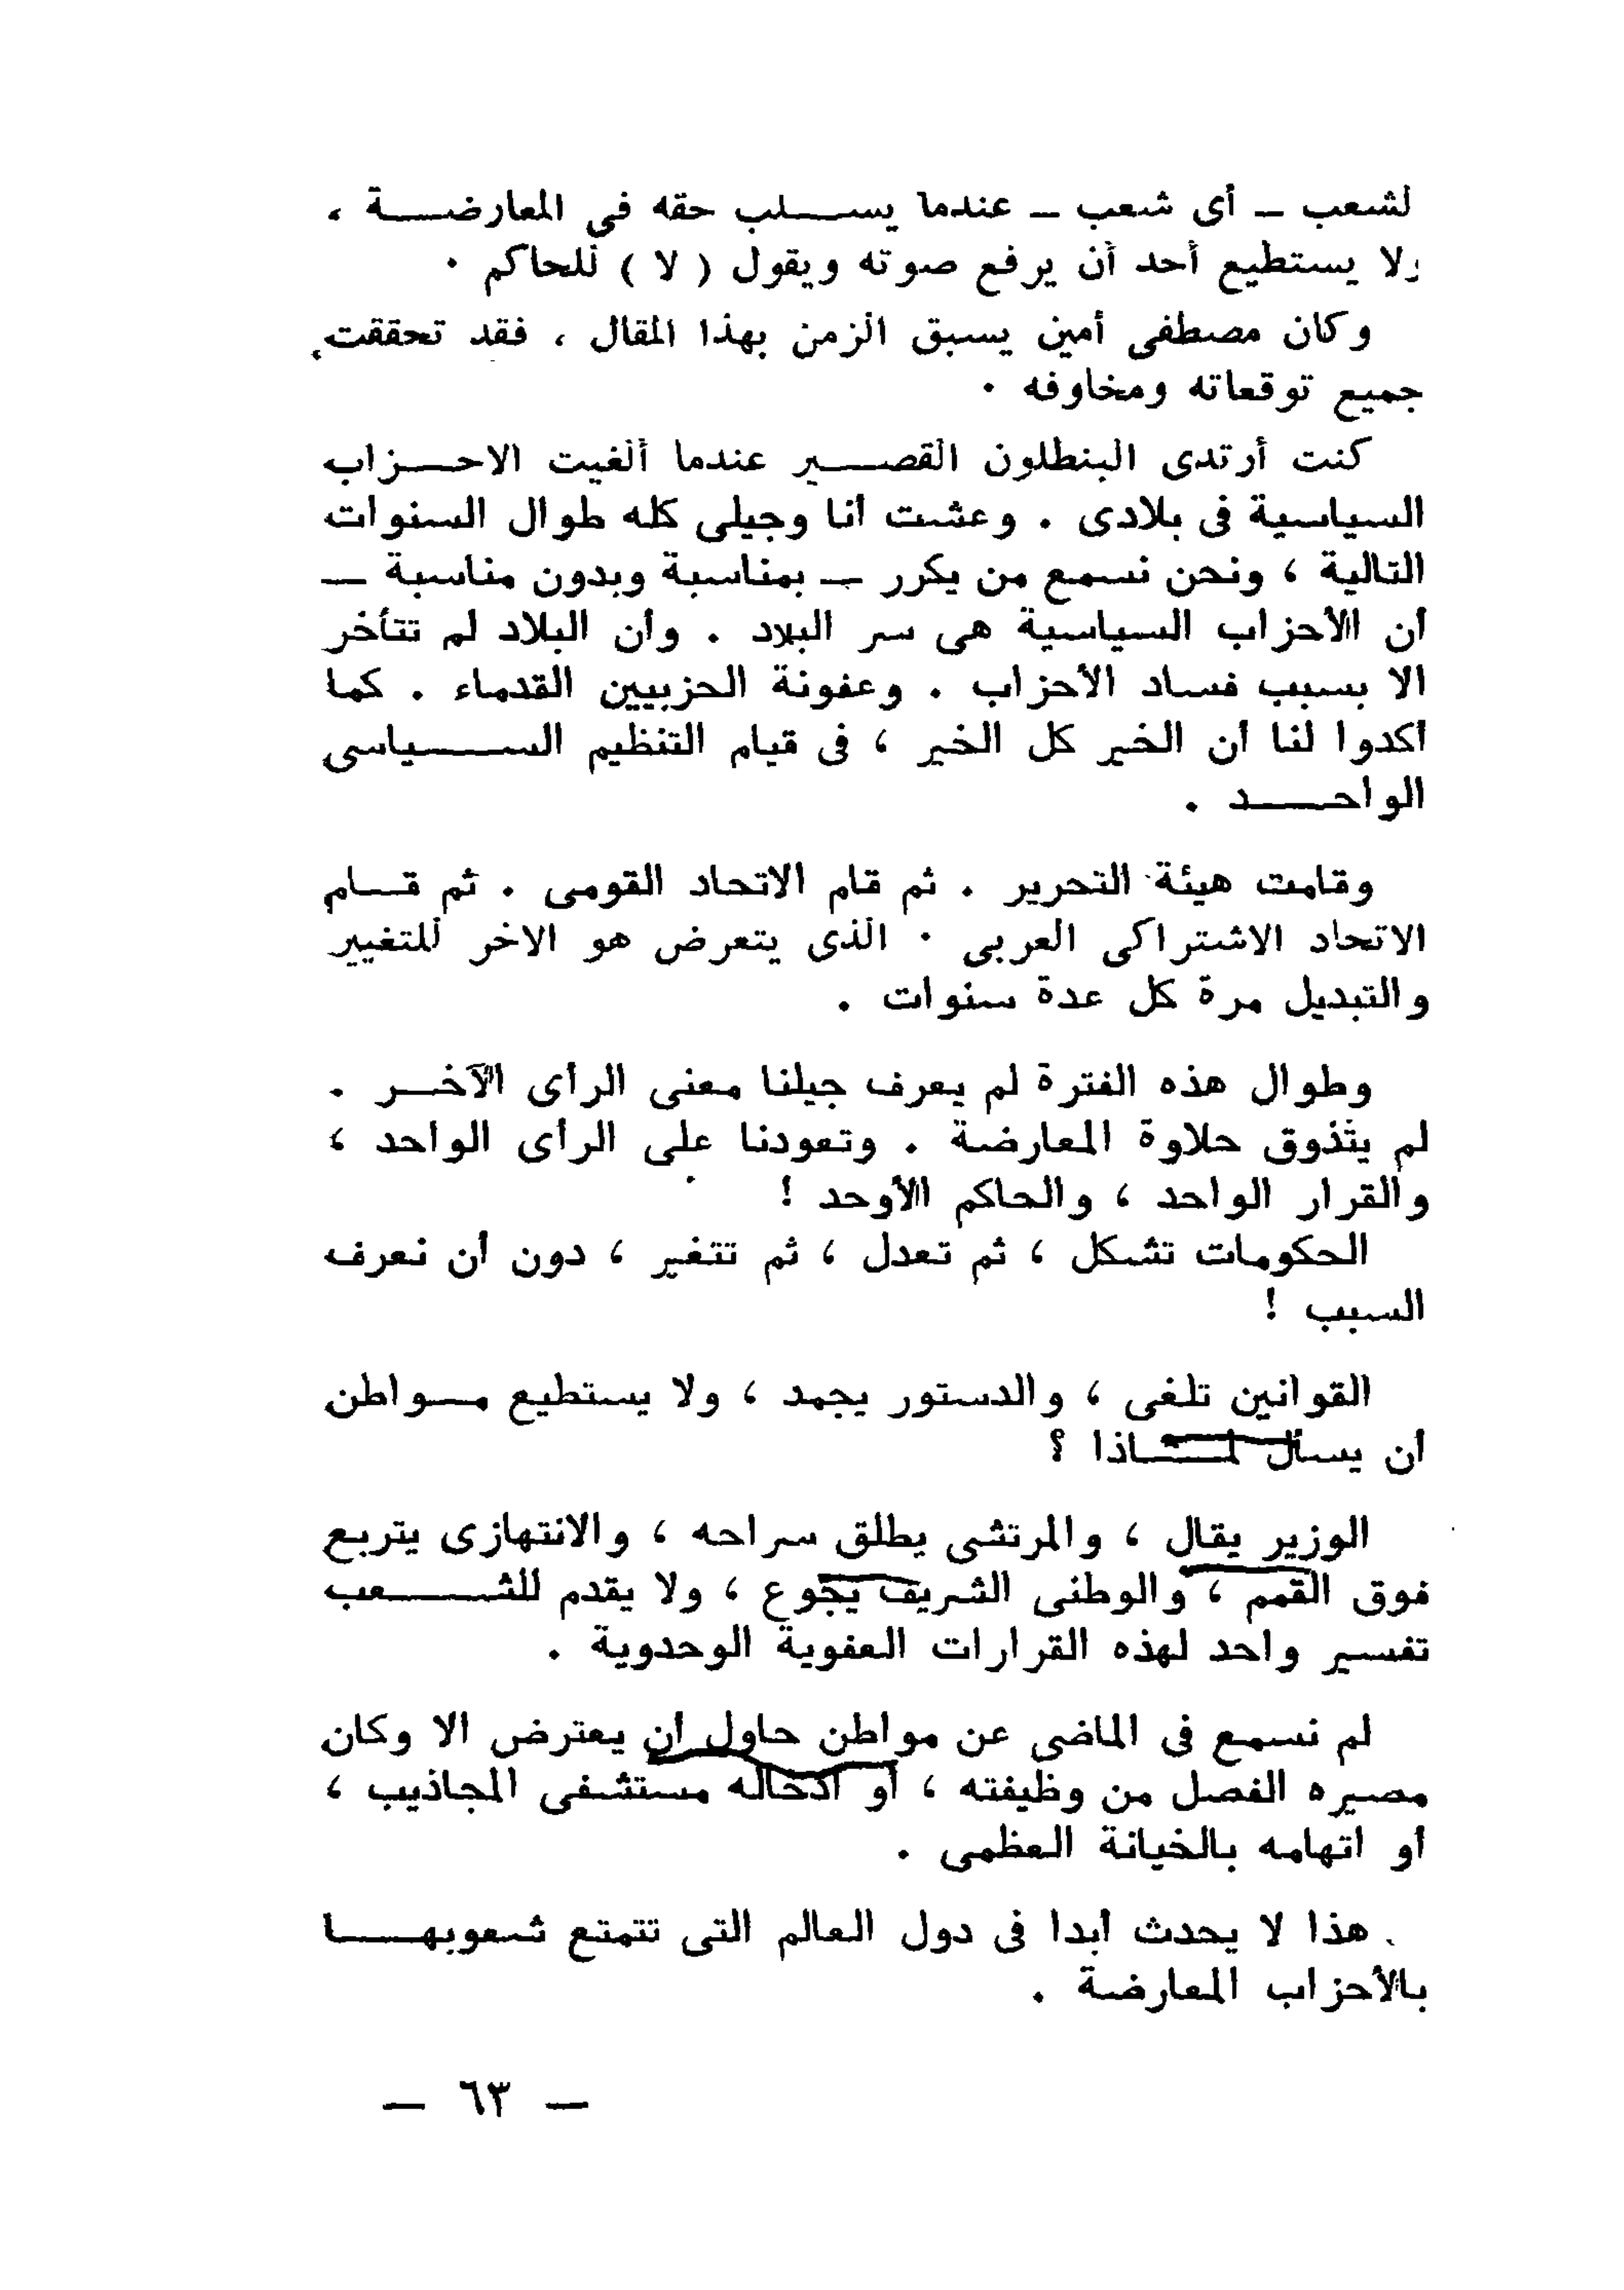 لشعب ـ أى شعب ـ عندما يسلب حقه فى المعارضة ،
ولا يستطيع أحد أن يرفع صوته ويقول ( لا ) للحاكم .
وكان مصطفى أمين يسبق الزمن بهذا المقال ، فقد تحققت
جميع توقعاته ومخاوفه .
كنت أرتدى البنطلون القصير عندما ألغيت الاحزاب
السياسية فى بلادى . وعشت أنا وجيلى كله طوال السنوات
التالية ، ونحن نسمع من يكرر — بمناسبة وبدون مناسبة —
أن الأحزاب السياسية هى سر البلاد . وأن البلاد لم تتأخر
الا بسبب فساد الأحزاب . وعفونة الحزبيين القدماء . كما
أكدوا لنا أن الخير كل الخير ، فى قيام التنظيم السياسى
الواحد .
وقامت هيئة التحرير . ثم قام الاتحاد القومى . ثم قام
الاتحاد الاشتراكى العربى . الذى يتعرض هو الاخر للتغيير
والتبديل مرة كل عدة سنوات .
وطوال هذه الفترة لم يعرف جيلنا معنى الرأى الآخر .
لم يتذوق حلاوة المعارضة . وتعودنا على الرأى الواحد ،
والقرار الواحد ، والحاكم الأوحد !
الحكومات تشكل ، ثم تعدل ، ثم تتغير ، دون أن نعرف
السبب !
القوانين تلغى ، والدستور يجمد ، ولا يستطيع مواطن
أن يسأل لماذا ؟
الوزير يقال ، والمرتشى يطلق سراحه ، والانتهازى يتربع
فوق القمم ، والوطنى الشريف يجوع ، ولا يقدم للشعب
تفسير واحد لهذه القرارات العفوية الوحدوية .
لم نسمع فى الماضى عن مواطن حاول أن يعترض الا وكان
مصيره الفصل من وظيفته ، أو ادخاله مستشفى المجاذيب ،
أو اتهامه بالخيانة العظمى .
هذا لا يحدث أبدا فى دول العالم التى تتمتع شعوبها
بالأحزاب المعارضة .
— ٦٣ —